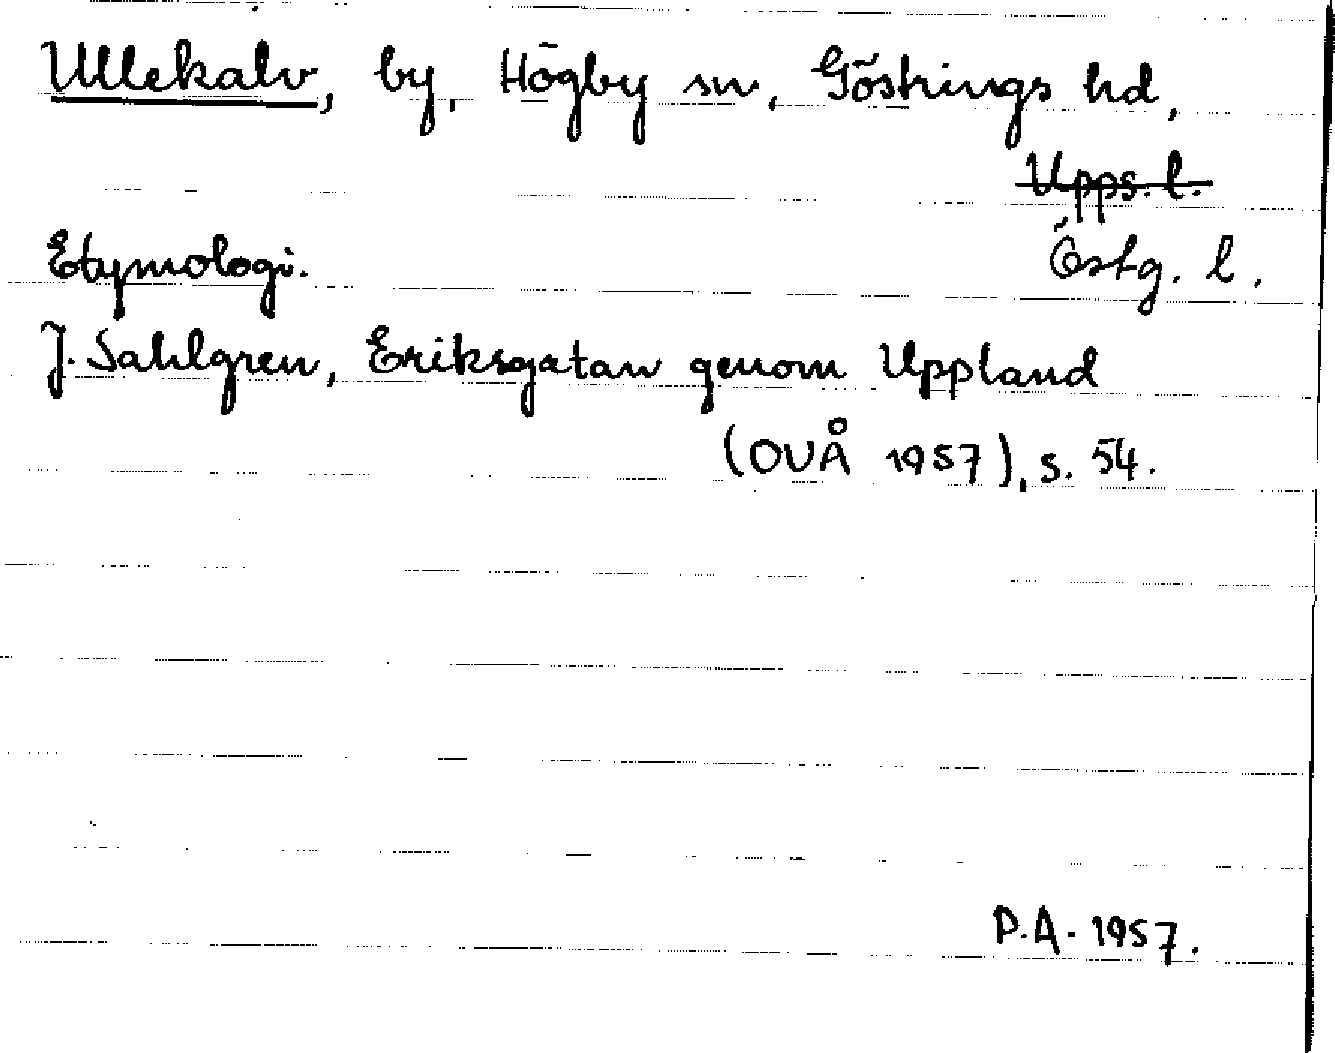 Ullekalv, by, Högby sn, Göstrings hd,
Upps. l.
Etymologi. Östg. l.
J. Sahlgren, Eriksgatan genom Uppland
(OUÅ 1957), s. 54.
P.A. 1957.